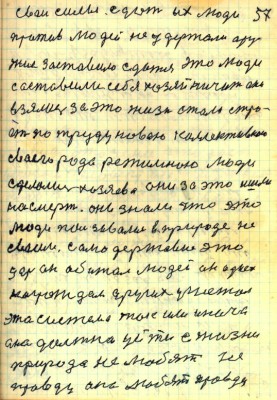 свои силы. сдают их люди 57
против людей не удержали ору-
жия заставило сдатся это люди
составили себя хозяйничит они
взялись за это жизн стало стро-
ят по труду новою коллективною
своего рода режимною люди
сделались хозяева они за это шли
насмерт. они знали что это
люди завоевали в природе не
своими. само державие это
царь он обитал людей он одних
награждал других угнетал
эта система тоже или иначе
она должна уйти с жизни
природа не любят не
правду она любят правду